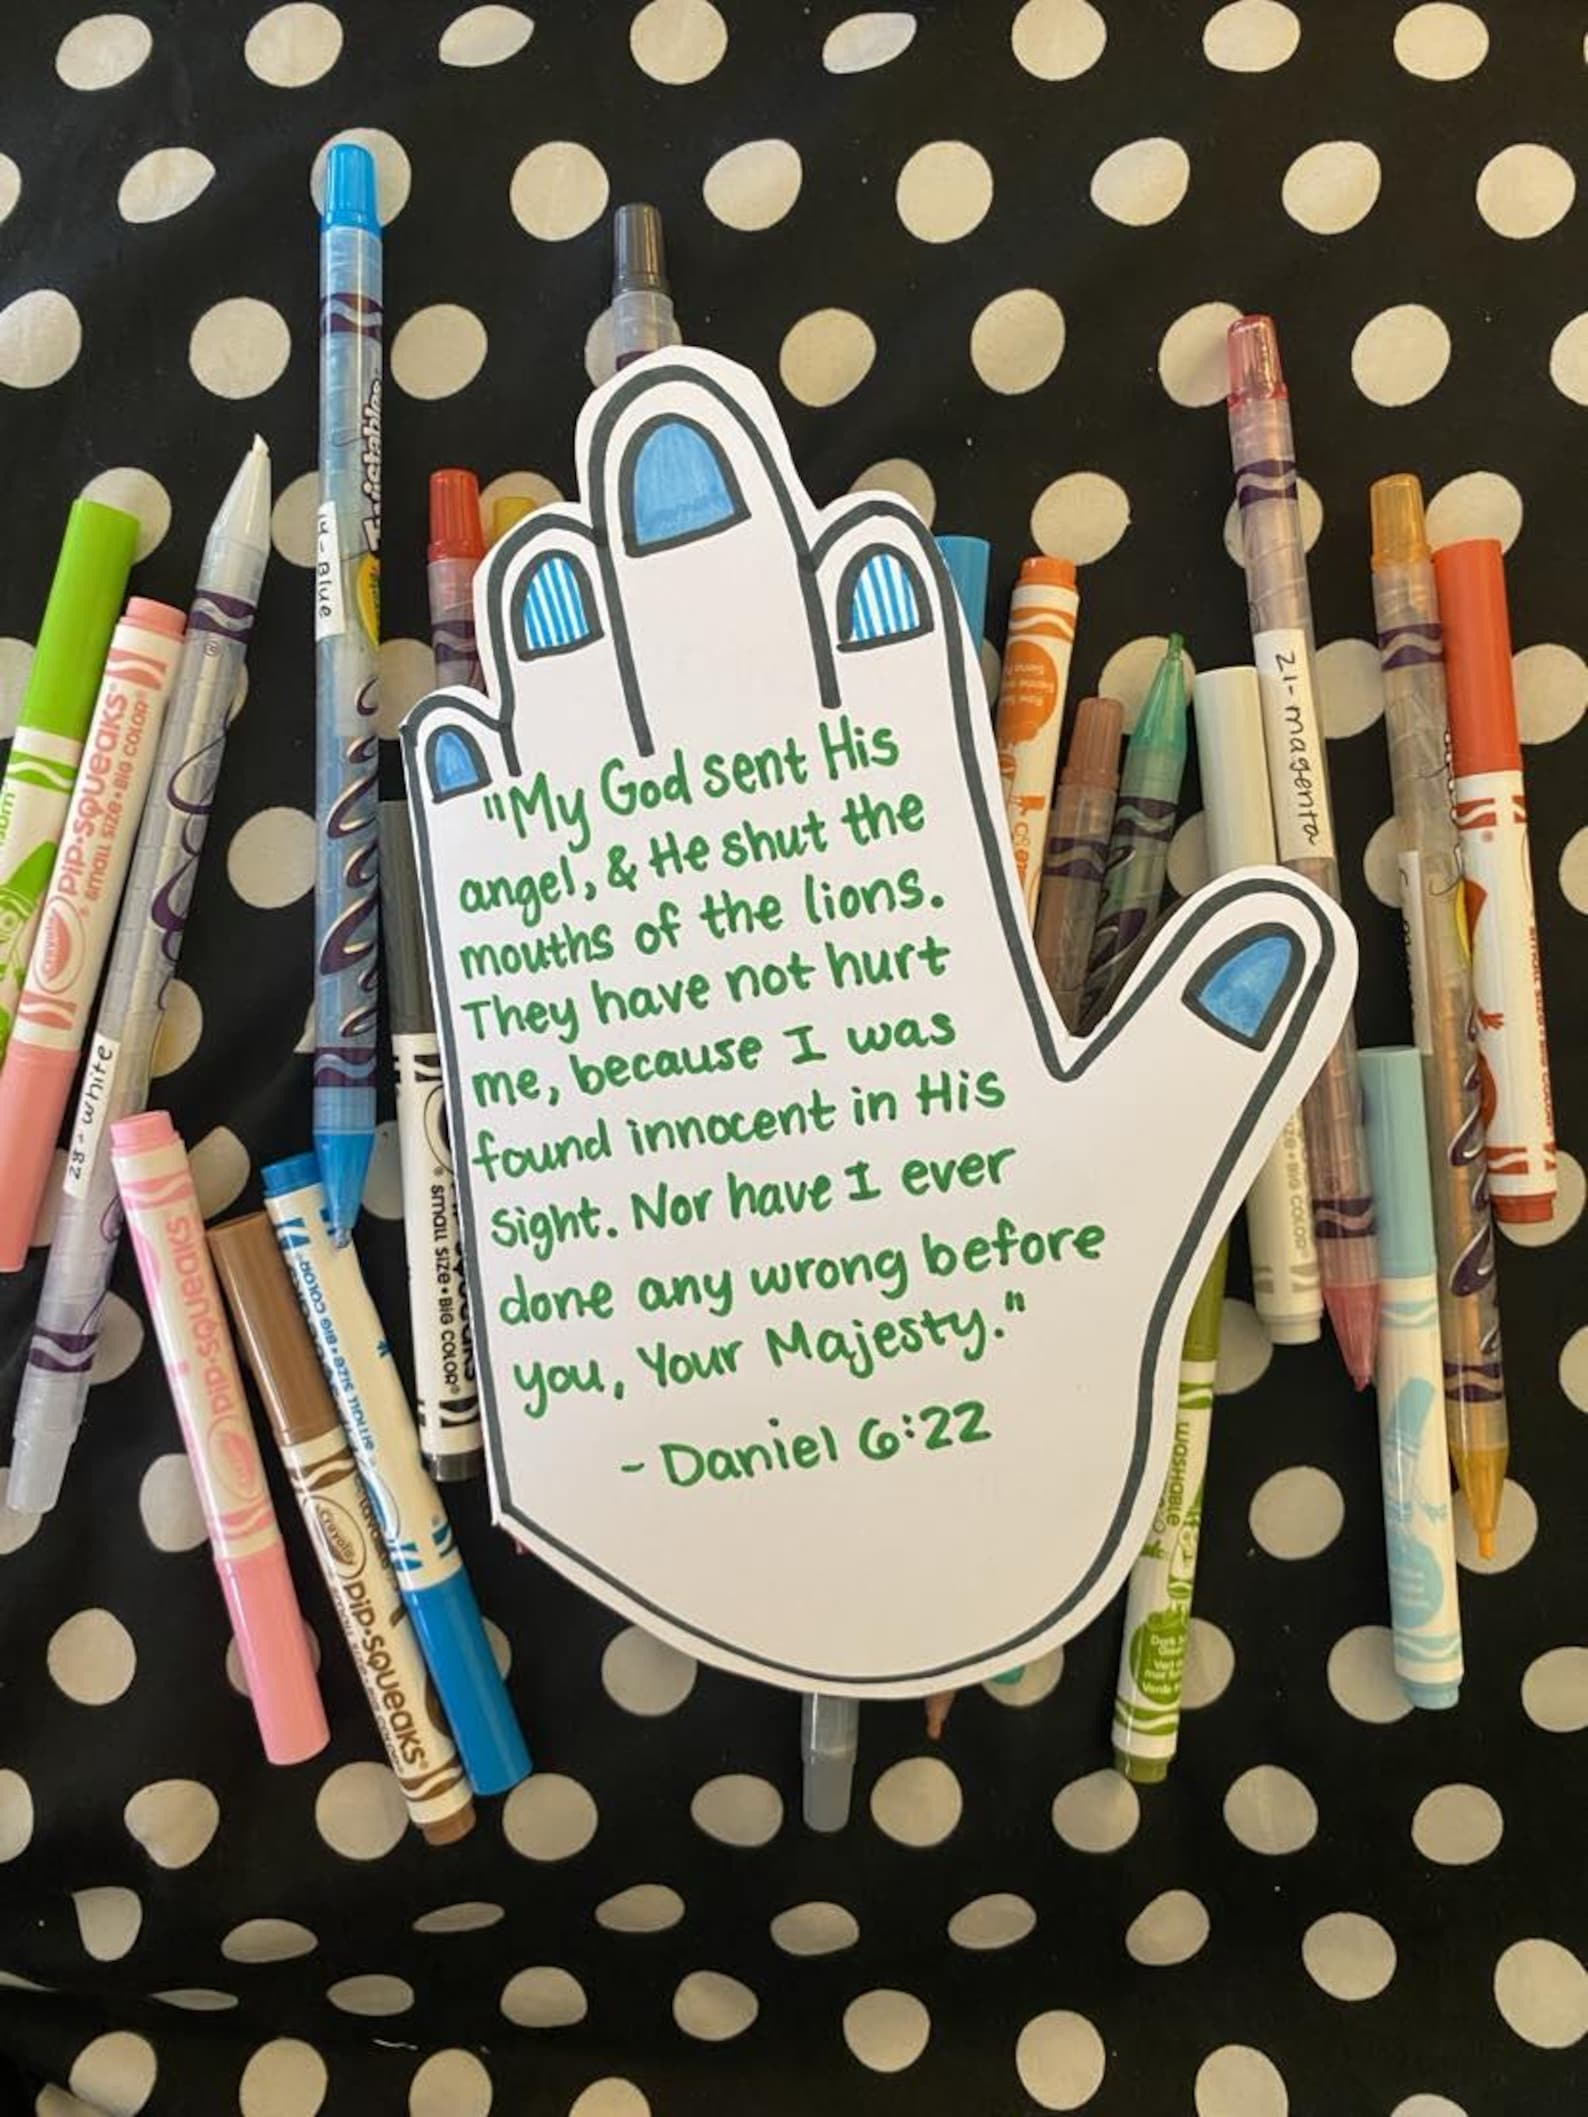 "My God sent His
angel, & He shut the
mouths of the lions.
They have not hurt
me, because I was
found innocent in His
sight. Nor have I ever
done any wrong before
you, Your Majesty."
- Daniel 6:22
14-Blue
Twistables
28-white
21-magenta
pip·squeaks
small size·BIG COLOR
pip·squeaks
pip·squeaks
small size·BIG COLOR
small size·BIG COLOR
Crayola
WASHABLE